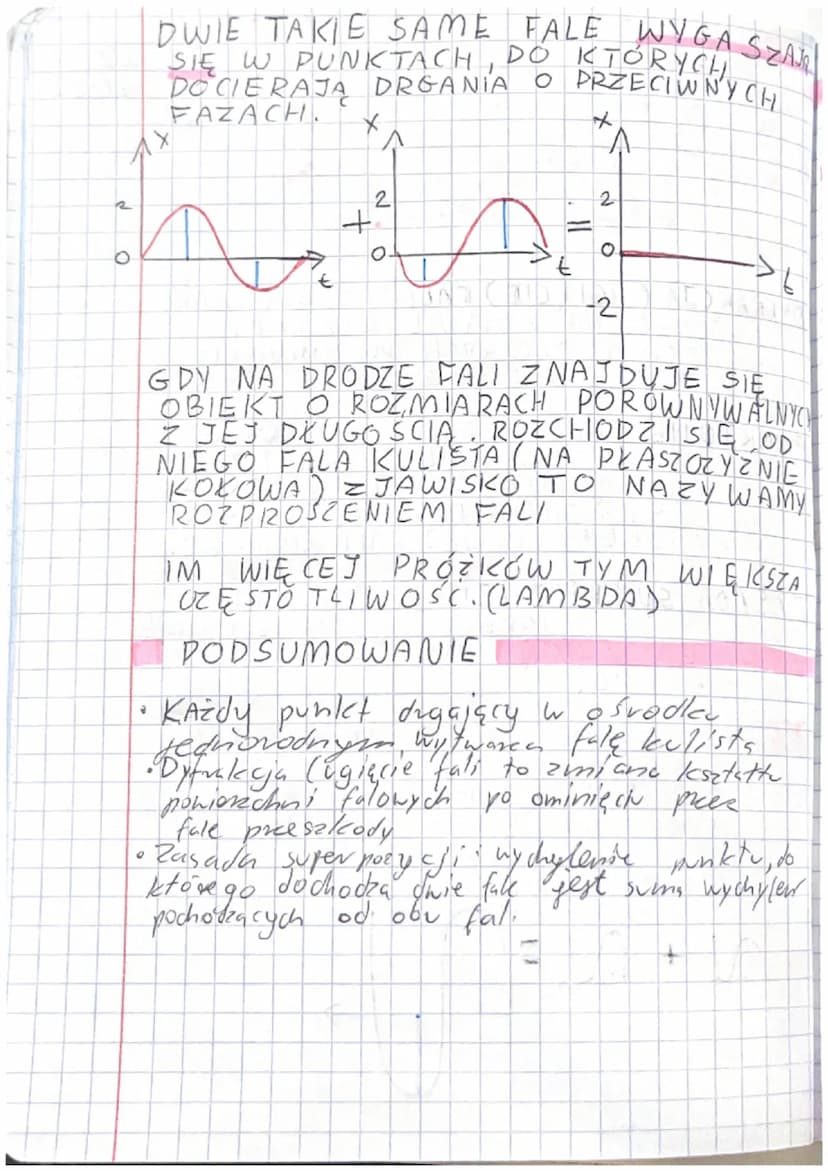 DWIE TAKIE SAME FALE WYGASZAJĄ
SIĘ W PUNKTACH, DO KTÓRYCH
DOCIERAJĄ DRGANIA O PRZECIWNYCH
FAZACH.
X X X
2 2 2
+ =
0 0 0
t t t
-2
GDY NA DRODZE FALI ZNAJDUJE SIĘ
OBIEKT O ROZMIARACH PORÓWNYWALNYCH
Z JEJ DŁUGOŚCIĄ. ROZCHODZI SIĘ OD
NIEGO FALA KULISTA (NA PŁASZCZYŹNIE
KOŁOWA) ZJAWISKO TO NAZYWAMY
ROZPROSZENIEM FALI
IM WIĘCEJ PRÓŻKÓW TYM WIĘKSZA
CZĘSTOTLIWOŚĆ. (LAMBDA)
PODSUMOWANIE
• KAżdy punkt drgający w ośrodku
jednorodnym, wytwarza falę kulistą
• Dyfrakcja (ugięcie fali to zmiana kształtu
powierzchni falowych po ominięciu przez
fale przeszkody
• Zasada superpozycji: wychylenie punktu, do
którego dochodzą dwie fale jest sumą wychyleń
pochodzących od obu fal.
= +